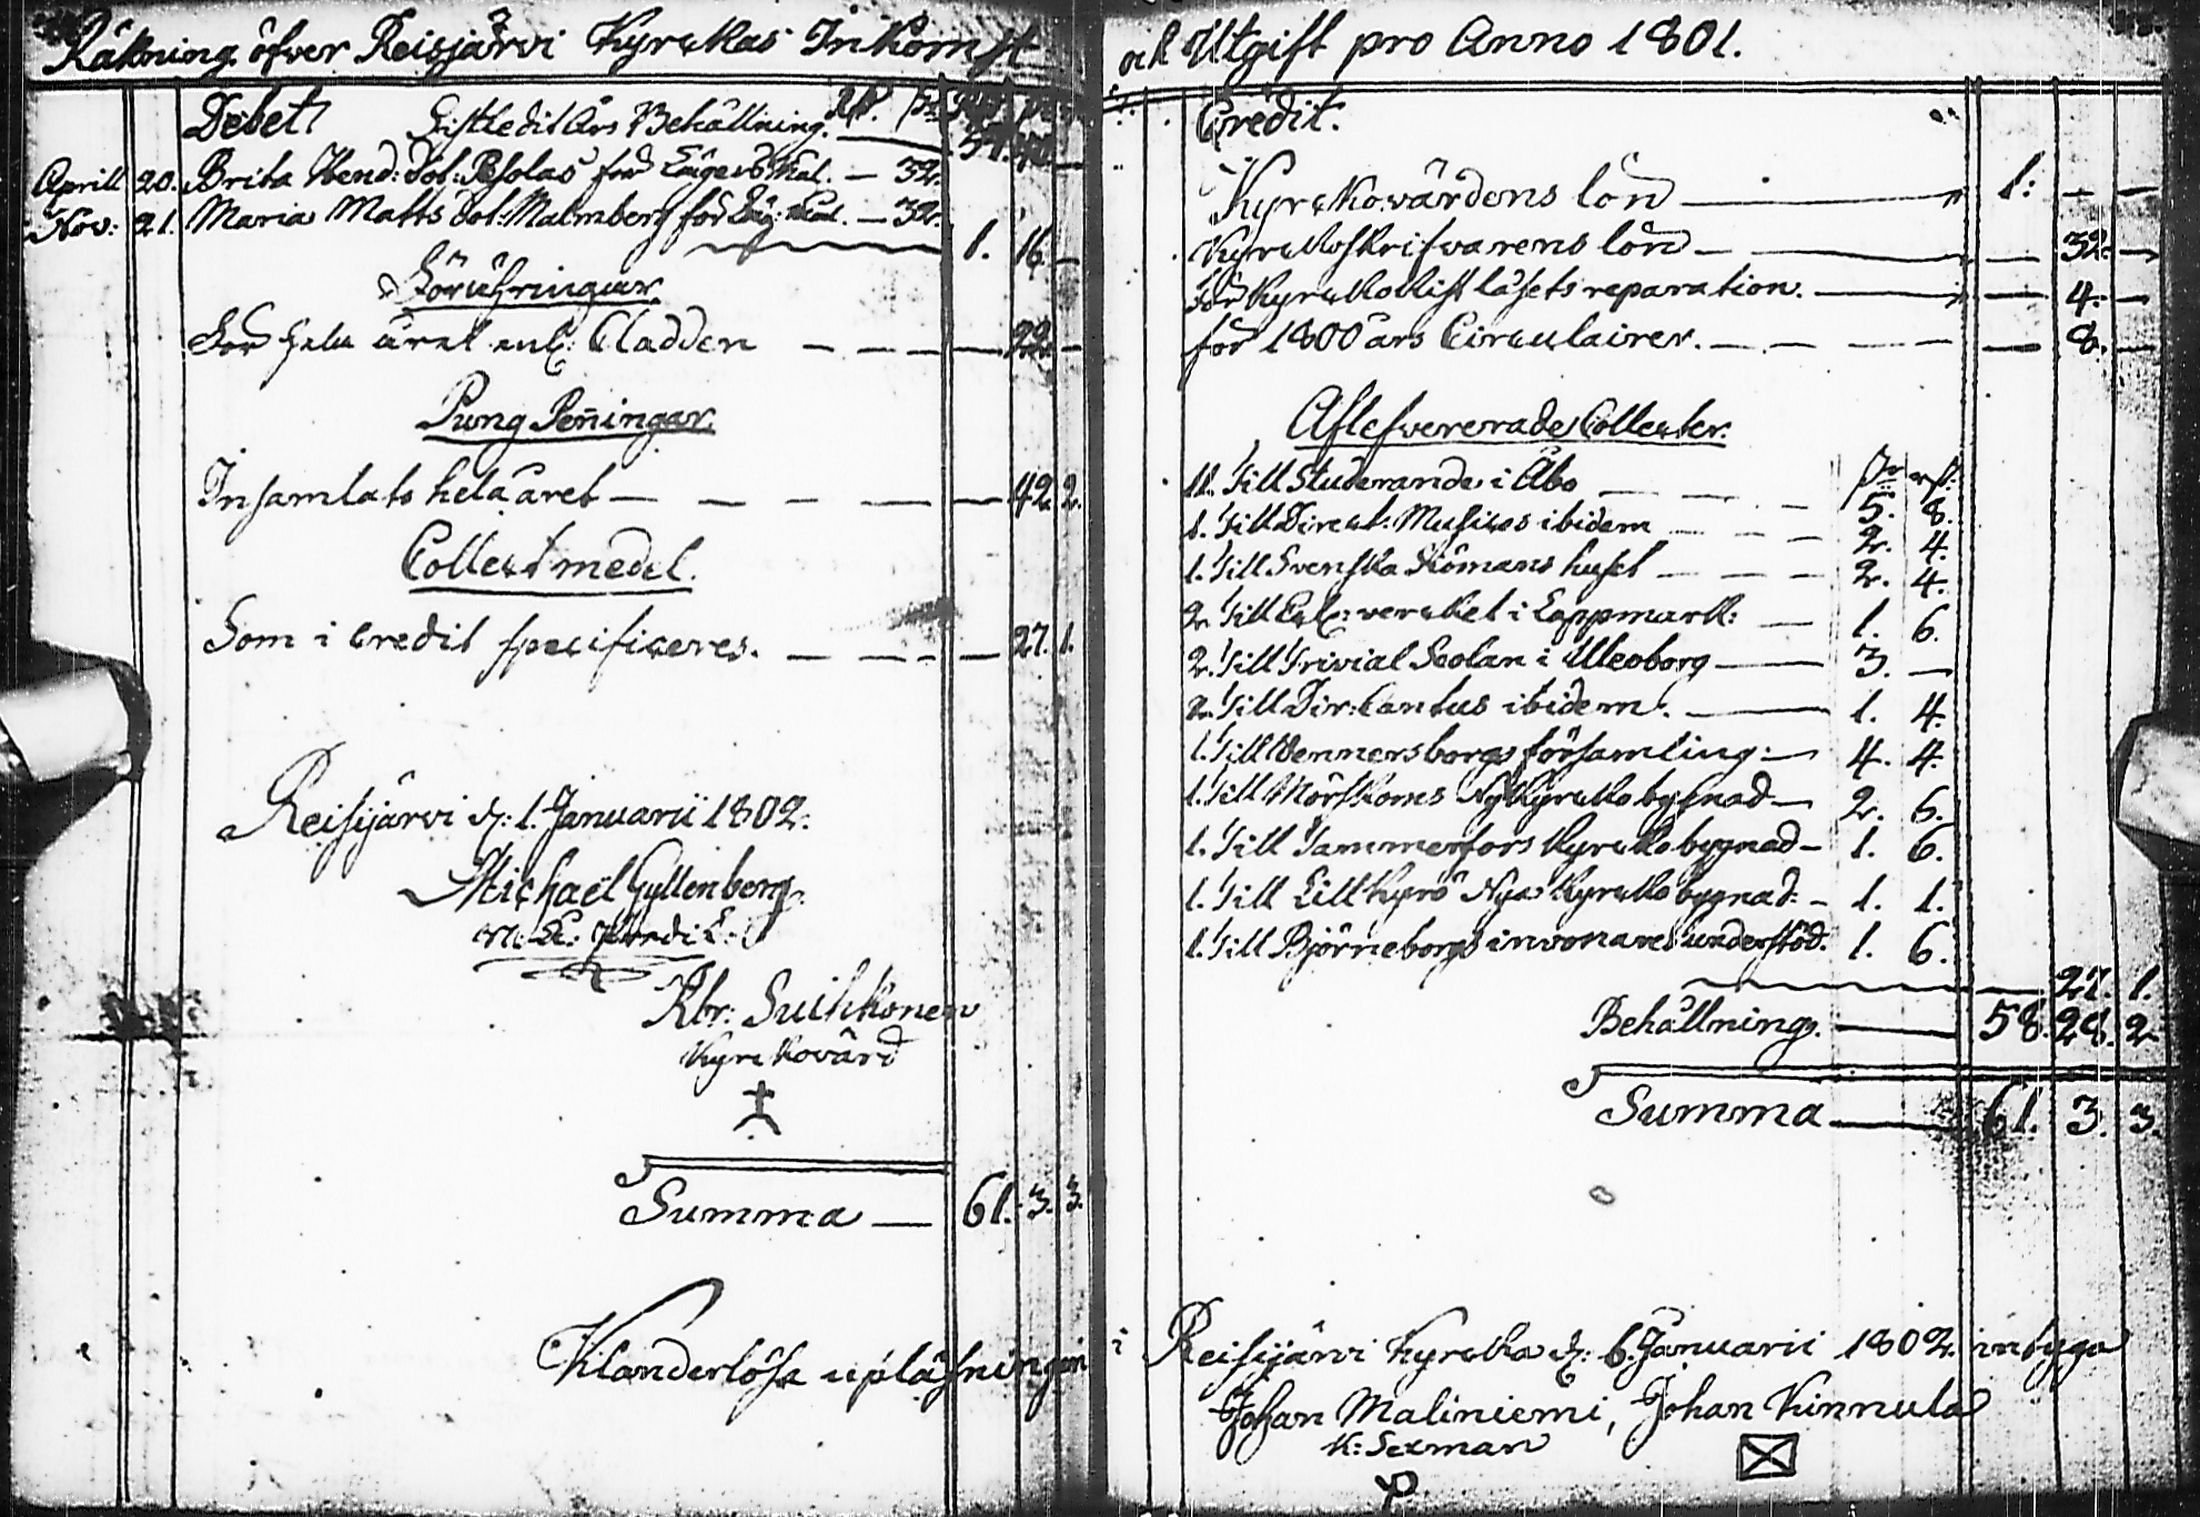 Räkning öfver Reisjärvi Kyrckas Inkomst
Debet
Sistledit Års Behållning.
Aprill 20. Brita Hend: dot: för Lägersmål. — 32.
Nov: 21. Maria Matts dot: Malmberg för Läg:mål. — 32.
1. 16. —
Föruhringar.
För hela året enl: Cladden — — — — 22. —
Pung Peñingar.
Insamlats hela året — — — — — 42. 2.
Collectmedel.
Som i Credit specificeres. — — — — 27. 1.
Reisijärvi d: 1. Januarii 1802.
Michaël Gyllenberg
Abr: Suihkonen
Kyrckovärd
Summa — 61. 3. 3.
Klanderlösa upläsningen
och Utgift pro Anno 1801.
Credit.
Kyrckovärdens lön — 1: — —
Kyrckoskrifvarens lön — — 32. —
för Kyrckokist låsets reparation. — — 4. —
för 1800 års Circulairer. — — — — 8. —
Aflefvererade Collecter.
11. Till Studerande i Åbo — — — 5. 8.
1. Till Direct: Musices ibidem — — — 2. 4.
1. Till Svenska Siömans huset — — — 2. 4.
2. Till Ecl: vercket i Lappmark: — 1. 6.
2. Till Trivial Scolan i Uleoborg — 3. —
2. Till Dir: Cantus ibidem. — 1. 4.
1. Till Wennersborgs församling: — 4. 4.
1. Till Mörskoms Ny Kyrcko bygnad — 2. 6.
1. Till Tammerfors Kyrcko bygnad — 1. 6.
1. Till Lill Kyrö Nya Kyrcko bygnad: — 1. 1.
1. Till Björneborgs invonares understöd. 1. 6.
27. 1.
Behållning. — 58. 28. 2
Summa — 61. 3. 3.
i Reisijärvi Kyrcka d: 6. Januarii 1802. intyga
Johan Maliniemi, Johan Kinnula
K: Sexman